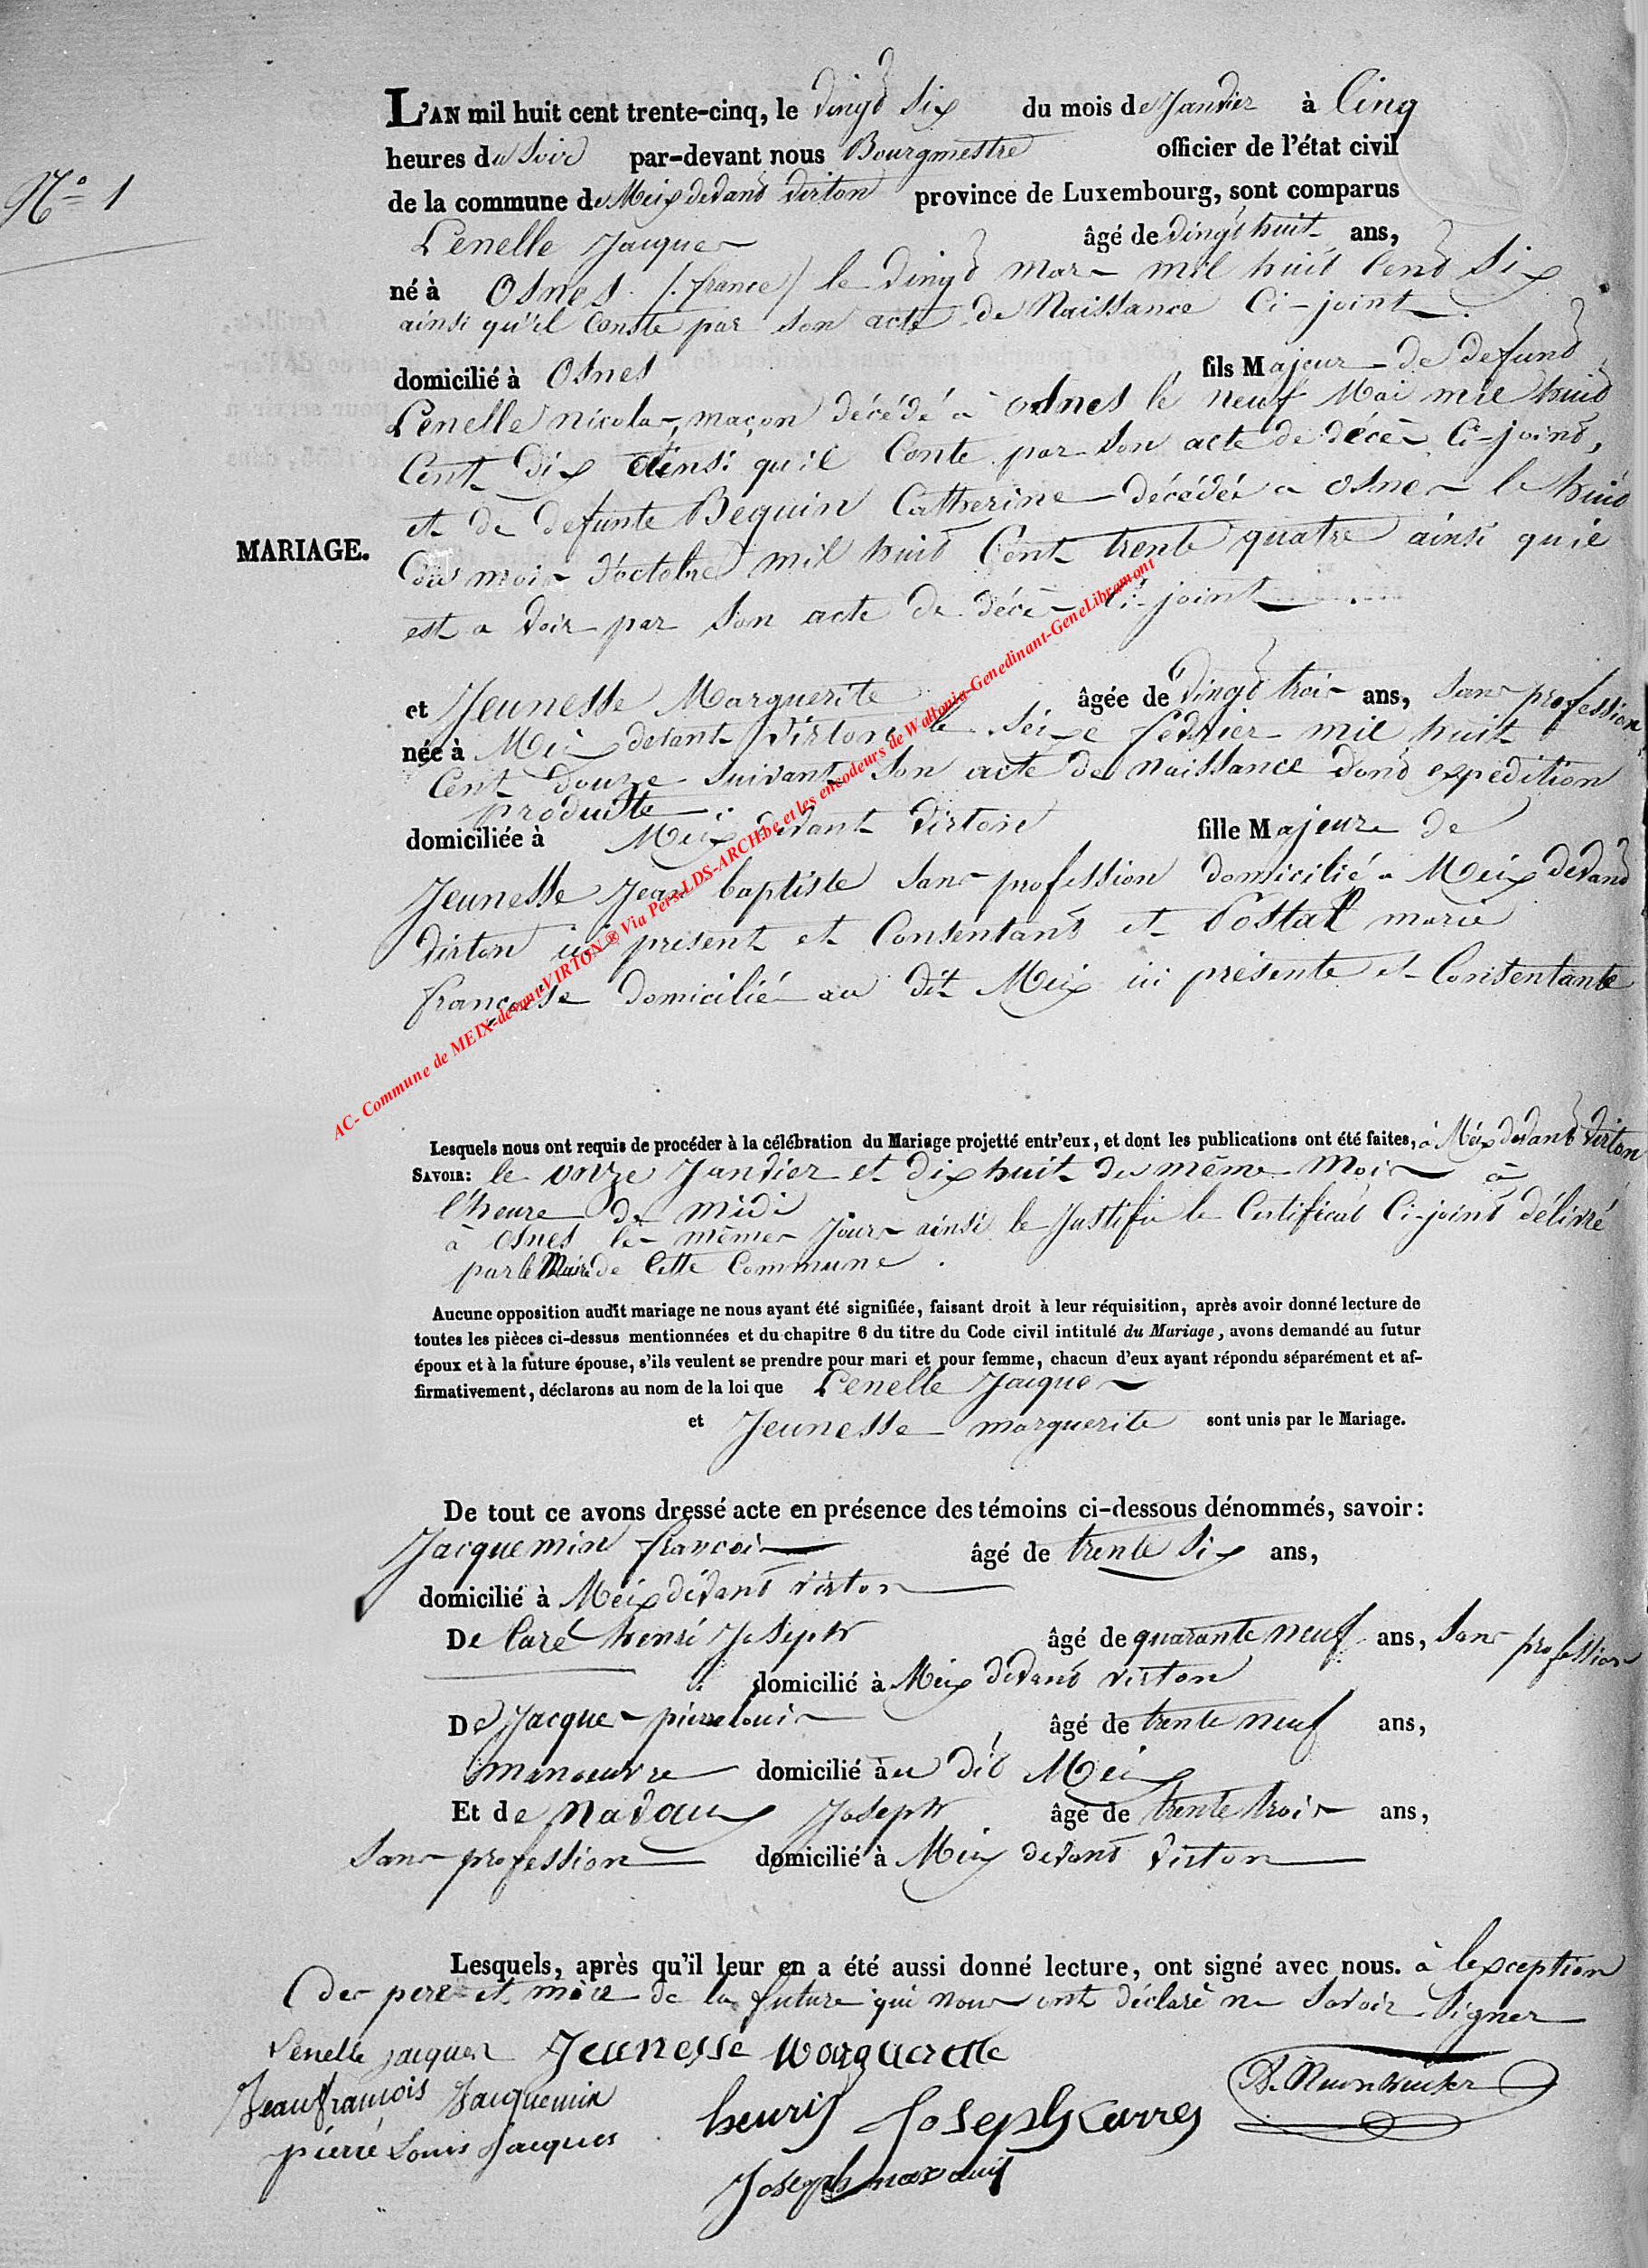 L'AN mil huit cent trente-cinq, le vingt six du mois de Janvier à Cinq
heures du Soir par-devant nous Bourgmestre officier de l'état civil
N° 1
de la commune de Meix devant Virton province de Luxembourg, sont comparus
Lenelle Jacques âgé de vingt huit ans,
né à Osnes (france) le vingt mars mil huit Cent Six
ainsi qu'il Conste par son acte de Naissance Ci-joint.
domicilié à Osnes fils Majeur de defunt
Lenelle nicolas, maçon décédé à Osnes le neuf Mai mil huit
Cent dix ainsi qu'il Conte par Son acte de décès Ci-joint,
et de defunte Bequin Catherine décédée a Osnes le huit
MARIAGE.
du mois d'octobre mil huit Cent trente quatre ainsi qu'il
est a voir par Son acte de décès Ci-joint
et Jeunesse Marguerite âgée de vingt trois ans, Sans profession
née à Meix devant Virton le Seize fevrier mil huit
Cent douze suivant Son acte de naissance dont expedition
produitte.
domiciliée à Meix devant Virton fille Majeure de
Jeunesse Jean baptiste Sans profession domicilié a Meix devant
Virton ici present et Consentant et Postal marie
françoise domicilié au dit Meix ici présente et Consentante
Lesquels nous ont requis de procéder à la célébration du Mariage projetté entr'eux, et dont les publications ont été faites, à Meix devant Virton
SAVOIR: le onze Janvier et dix huit du même Mois à
l'heure de midi
à Osnes les mêmes Jours ainsi le Justifie le Certificat Ci-joint délivré
par le Maire de Cette Commune.
Aucune opposition audit mariage ne nous ayant été signifiée, faisant droit à leur réquisition, après avoir donné lecture de
toutes les pièces ci-dessus mentionnées et du chapitre 6 du titre du Code civil intitulé du Mariage, avons demandé au futur
époux et à la future épouse, s'ils veulent se prendre pour mari et pour femme, chacun d'eux ayant répondu séparément et af-
firmativement, déclarons au nom de la loi que Lenelle Jacques
et Jeunesse marguerite sont unis par le Mariage.
De tout ce avons dressé acte en présence des témoins ci-dessous dénommés, savoir:
Jacquemin francois âgé de trente Six ans,
domicilié à Meix devant Virton
De Caré henri Joseph âgé de quarante neuf ans, Sans profession
domicilié à Meix devant Virton
De Jacques pierre louis âgé de trente neuf ans,
manoeuvre domicilié au dit Meix
Et de Navaux Joseph âgé de trente trois ans,
Sans profession domicilié à Meix devant Virton
Lesquels, après qu'il leur en a été aussi donné lecture, ont signé avec nous. à lexception
des pere et mère de la future qui nous ont déclaré ne Savoir Signer
Lenelle jacques Jeunesse Marguerite
Jean francois Jacquemin henrij Joseph Carrez
pierre Louis Jacques
Joseph
AC- Commune de MEIX-devant-VIRTON ® Via Pers.LDS-ARCH.be et les encodeurs de Wallonia-Genedinant-GeneLibramont